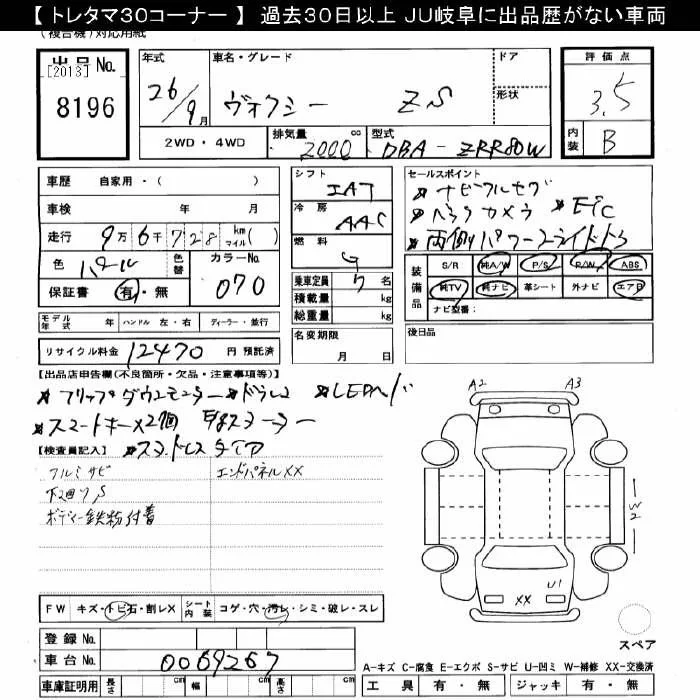 【 トレタマ30コーナー 】 過去30日以上 JU岐阜に出品歴がない車両
(複合機)対応用紙
出品No.
[2013]
8196
年式 26/9月
車名・グレード ヴォクシー ZS
ドア
形状
2WD・4WD
排気量 2000 cc
型式 DBA-ZRR80W
評価点 3.5
内装 B
車歴 自家用・( )
車検 年 月
走行 9万6千728 km マイル( )
色 パール
色替
カラーNo. 070
保証書 有・無
シフト IAT
冷房 AAC
燃料 G
乗車定員 7名
積載量 kg
総重量 kg
セールスポイント
★ナビフルセグ
★バックカメラ ★ETC
★両側パワースライドドア
装備品 S/R 純A/W P/S P/W ABS
純TV 純ナビ 革シート 外ナビ エアB
ナビ型番:
モデル年式 年 ハンドル 左・右 ディーラー・並行
名変期限 月 日
後日品
リサイクル料金 12470 円 預託済
【出品店申告欄(不良箇所・欠品・注意事項等)】
★フリップダウンモニター ★ドラレコ ★LEDヘッド
★スマートキー×2個
★スタッドレスタイヤ
【検査員記入】
フルミサビ
下廻りS
ボディー鉄粉付着
エンドパネルXX
A2 A3
W2
U1
XX
FW キズ・トビ石・割レX シート内装 コゲ・穴・汚レ・シミ・破レ・スレ
スペア
登録No.
車台No. 0069267
A-キズ C-腐食 E-エクボ S-サビ U-凹ミ W-補修 XX-交換済
車庫証明用 長さ cm 幅 cm 高さ cm
工具 有・無 ジャッキ 有・無